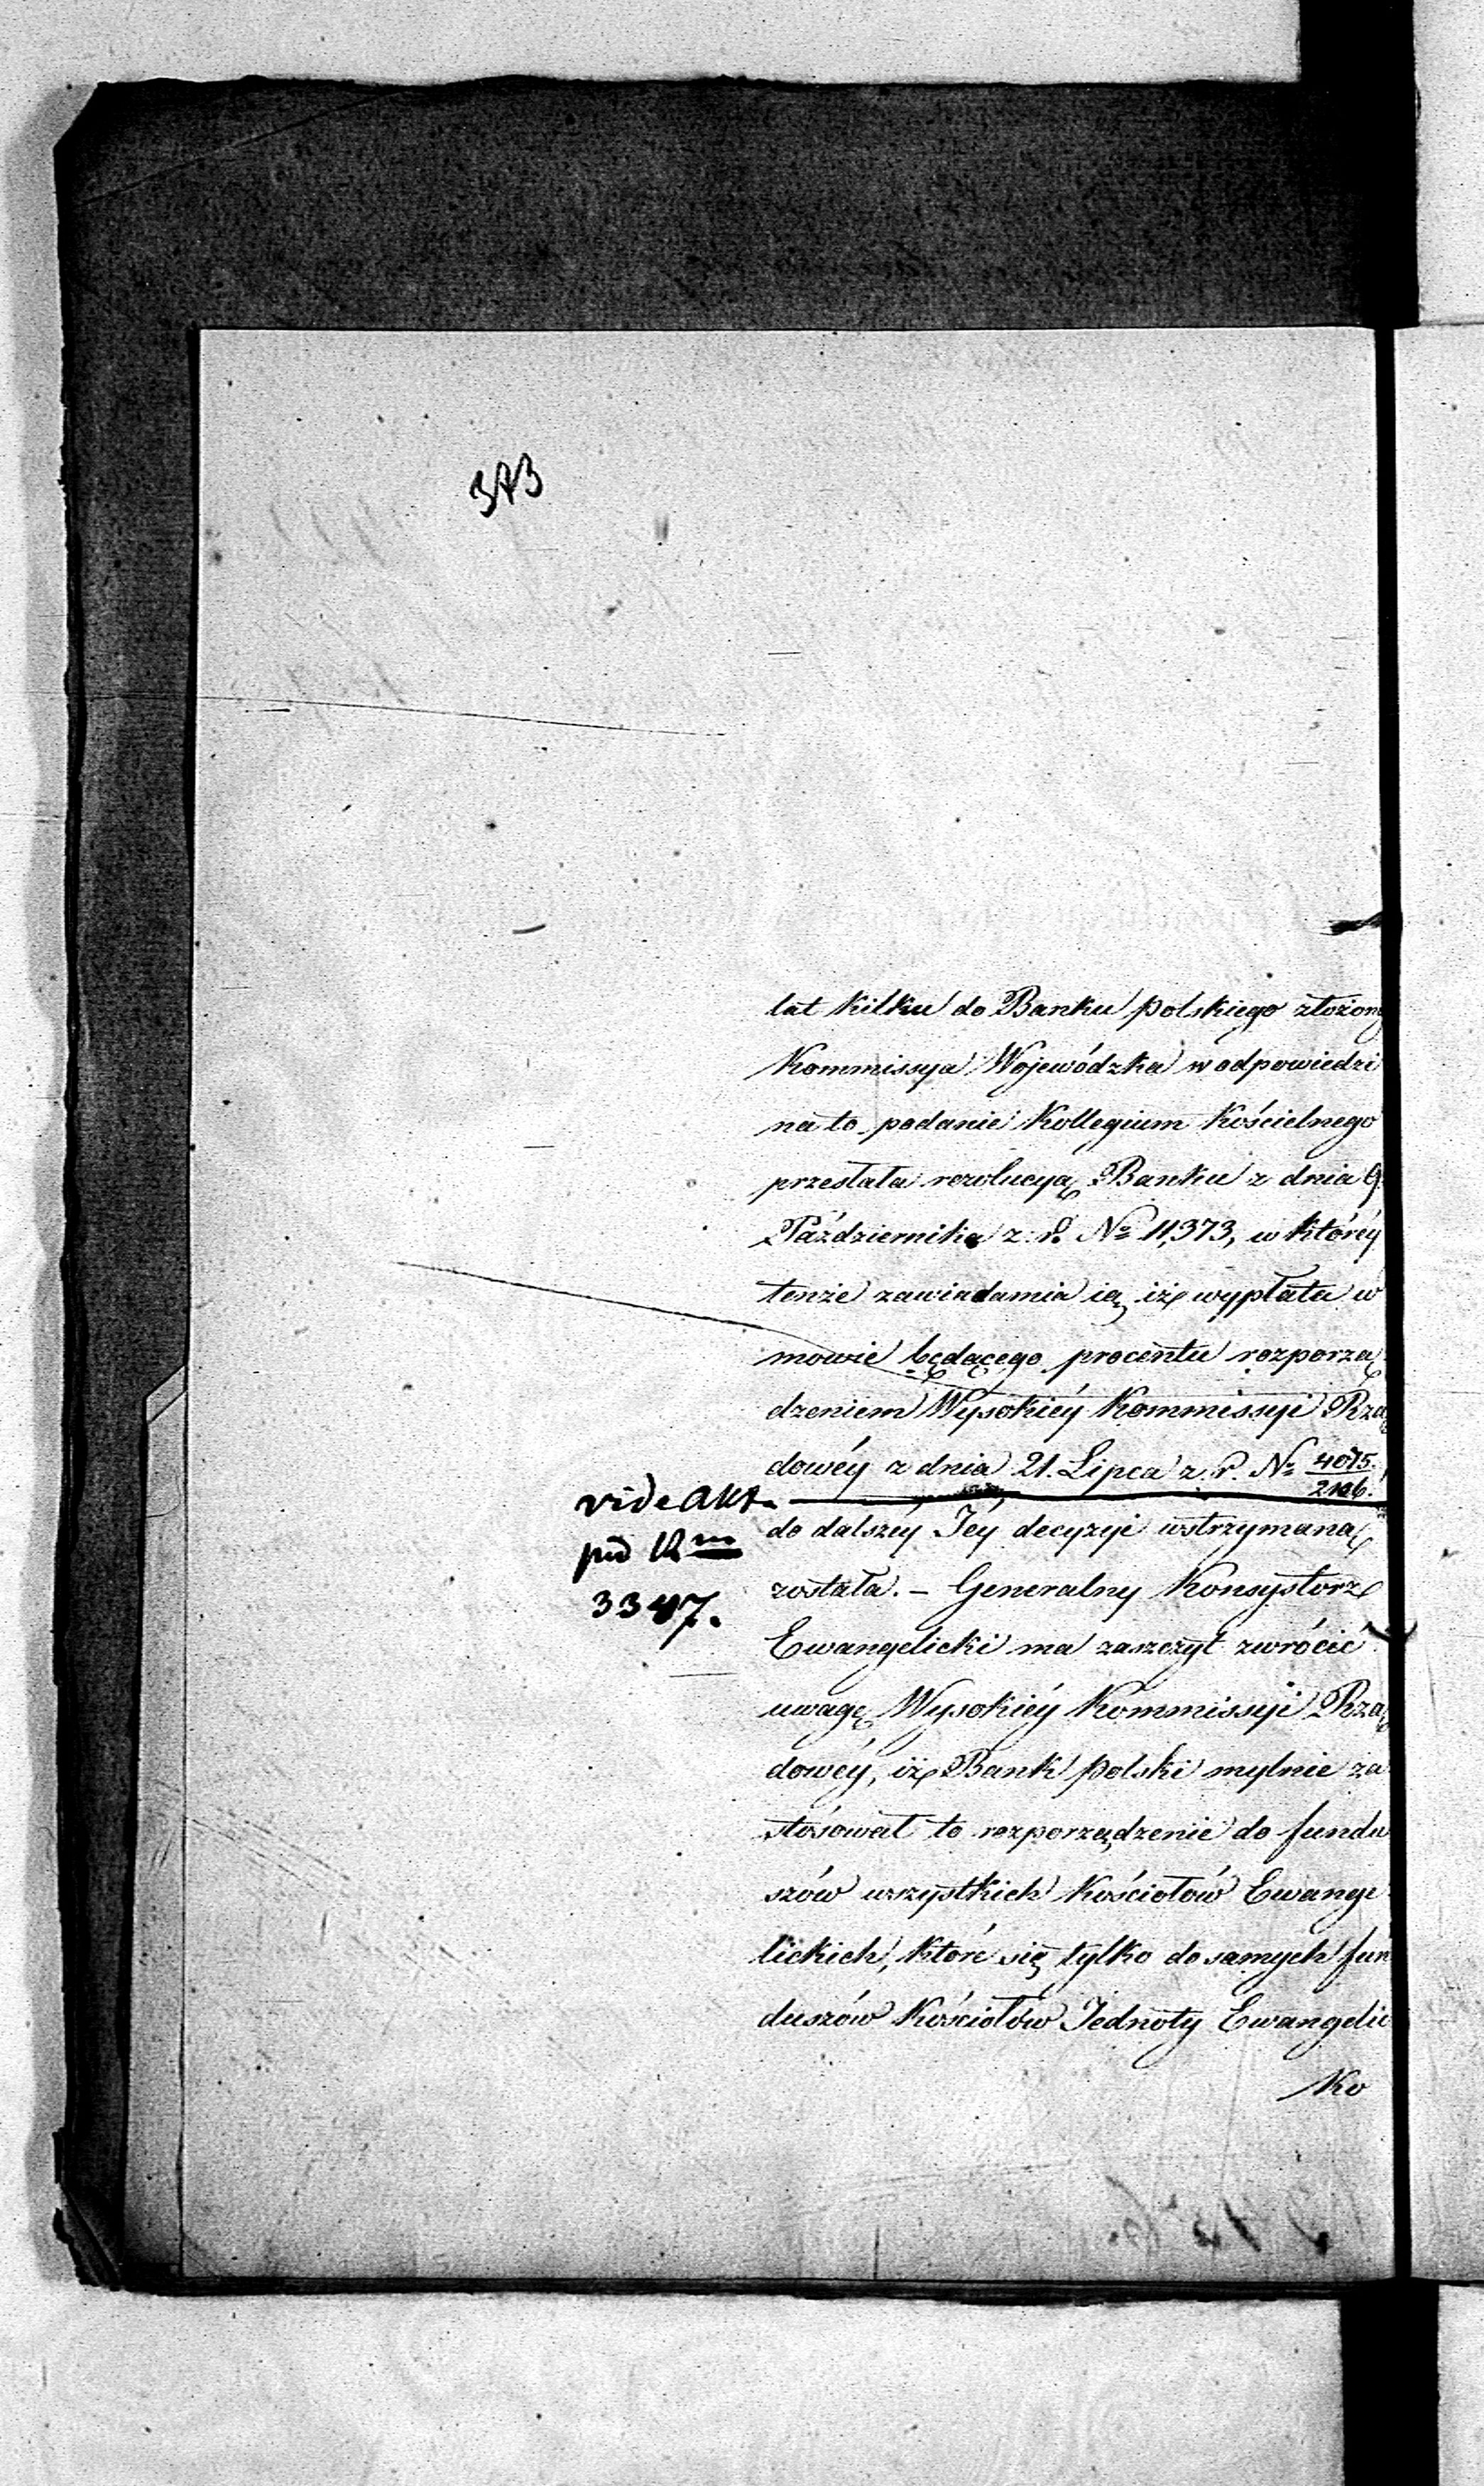 373
lat kilku do Banku polskiego złożony
Kommissya Wojewódzka w odpowiedzi
na to podanie Kollegium Kościelnego
przesłała rezolucyą Banku z dnia 9
Października z. r. No 11,373, w któréy
tenże zawiadamia ią iż wypłata w
mowie będącego procentu rozporzą
dzeniem Wysokiéy Kommissyi Rzą
dowéy z dnia 21. Lipca z. r. No 4075./2126.
vide akt.
do dalszéy Jéy decyzyi wstrzymaną
pod
została. – Generalny Konsystorz
3347.
Ewangelicki ma zaszczyt zwrócić
uwagę Wysokiéy Kommissyi Rzą
dowéy, iż Bank polski mylnie za
stósował to rozporządzenie do fundu
szów wszystkich Kościołów Ewange
lickich, które się tylko do samych fun
duszów Kościołów Jednoty Ewangelic
Ko